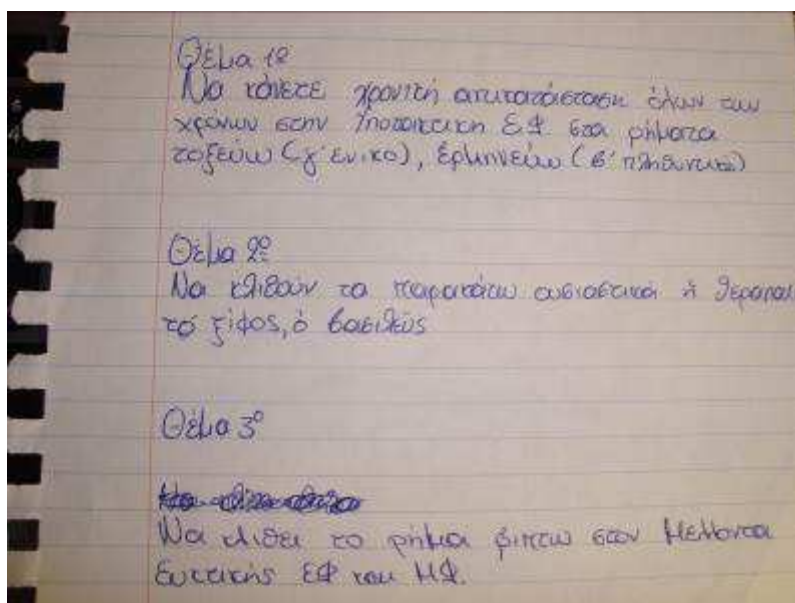 Θέμα 1º
Να κάνετε χρονική αντικατάσταση όλων των
χρόνων στην Υποτακτική ΕΦ στα ρήματα
τοξεύω (γ' ενικο), ἑρμηνεύω (β' πληθυντικό)
Θέμα 2º
Να κλιθούν τα παρακάτω ουσιαστικά
τό ξίφος, ὁ βασιλεύς
Θέμα 3º
Να κλιθεί το ρήμα ρίπτω στον Μέλλοντα
Ευκτικής ΕΦ και ΜΦ.